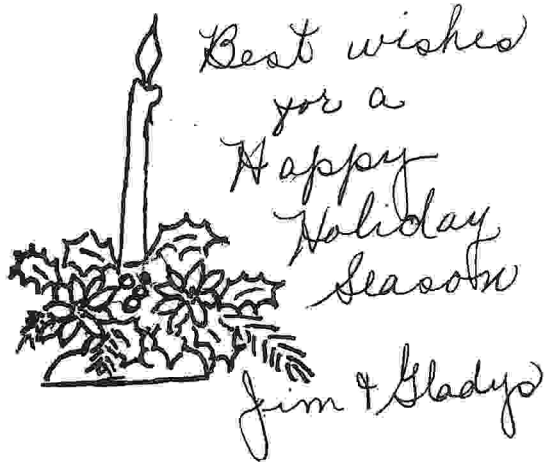 Best wishes
for a
Happy
Holiday
Season
Jim & Gladys